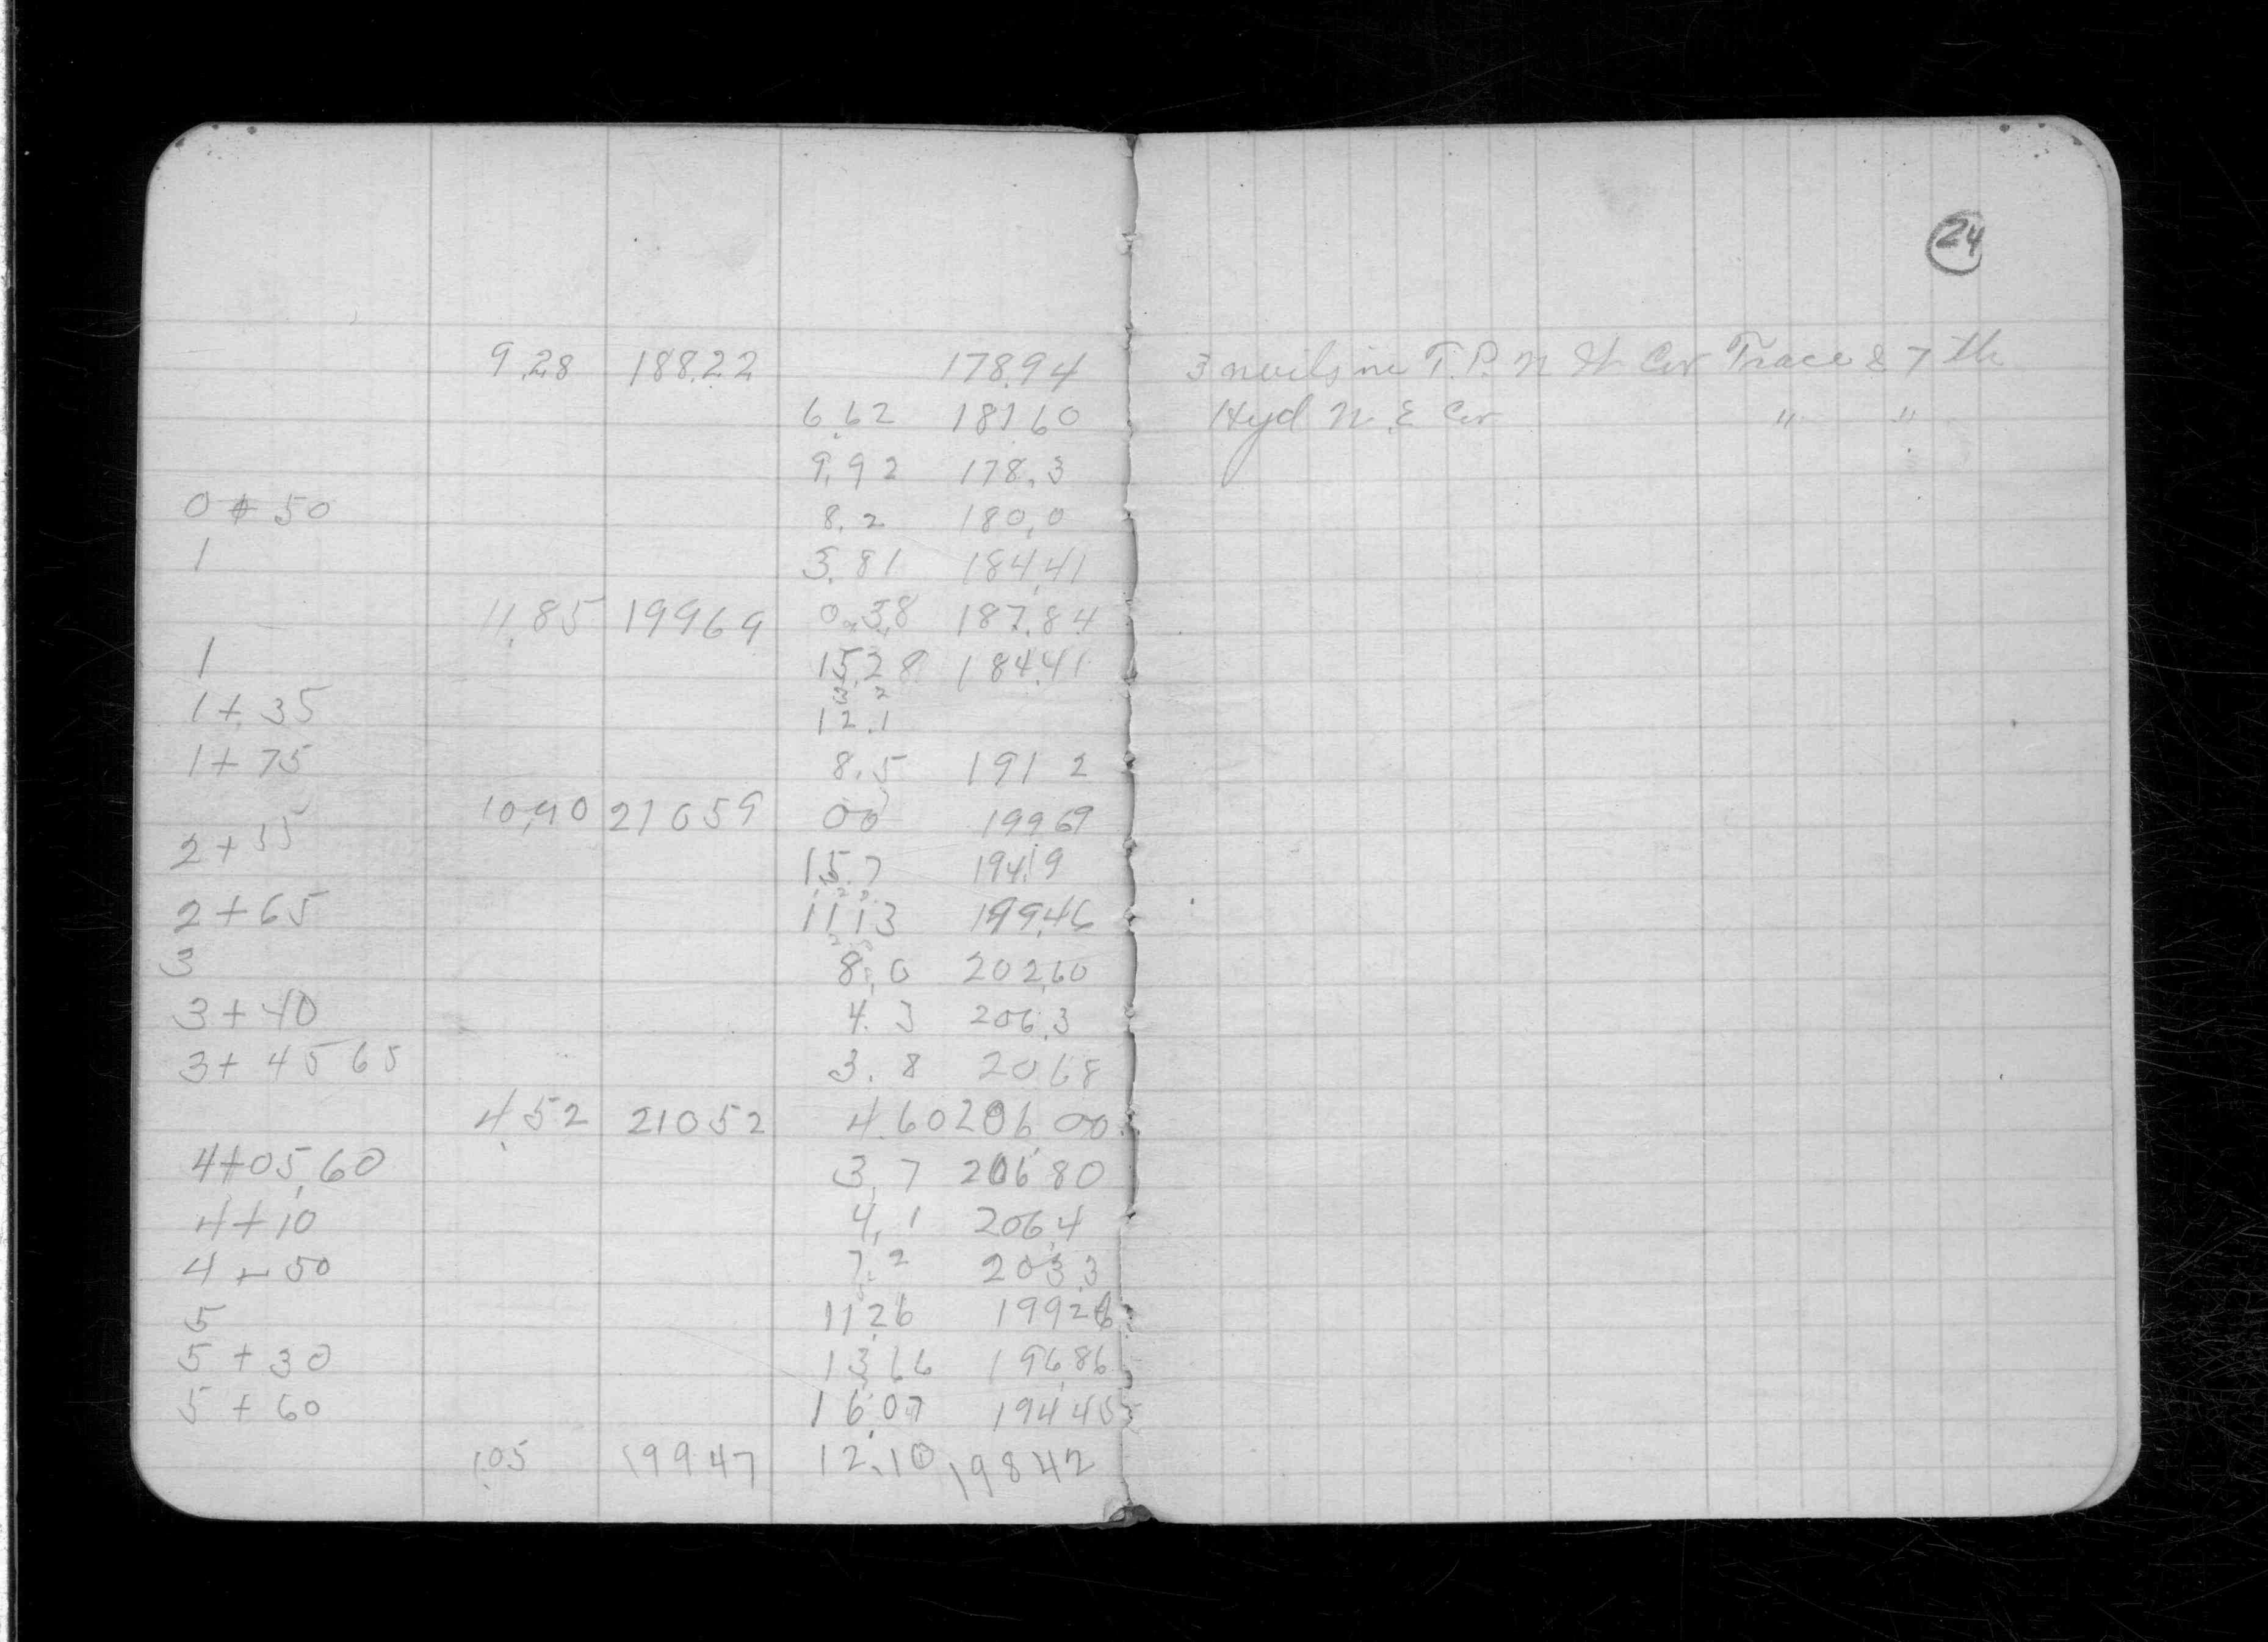 24
9.28 188.22 178.94 3 nails in T.P. N W Cor Trace & 7 th
6.62 181.60 Hyd N.E Cor " "
9.92 178.3
0 + 50 8.2 180.0
1 3.81 184.41
11.85 199.69 0.38 187.84
1 15.28 184.41
1 + 35 12.1
1 + 75 8.5 191 2
10.90 210 59 00 199 69
2 + 35 15.7 194.19
2 + 65 11 13 199.46
3 8.0 202.60
3 + 40 4.3 206.3
3 + 45 65 3.8 206 8
4.52 210 52 4.60 206.00
4+05.60 3.7 206 80
4+10 4.1 206.4
4 + 50 7.2 203.3
5 11.26 199 26
5 + 30 13.66 196.86
5 + 60 16.07 194.45
1.05 199.47 12.10 198 42